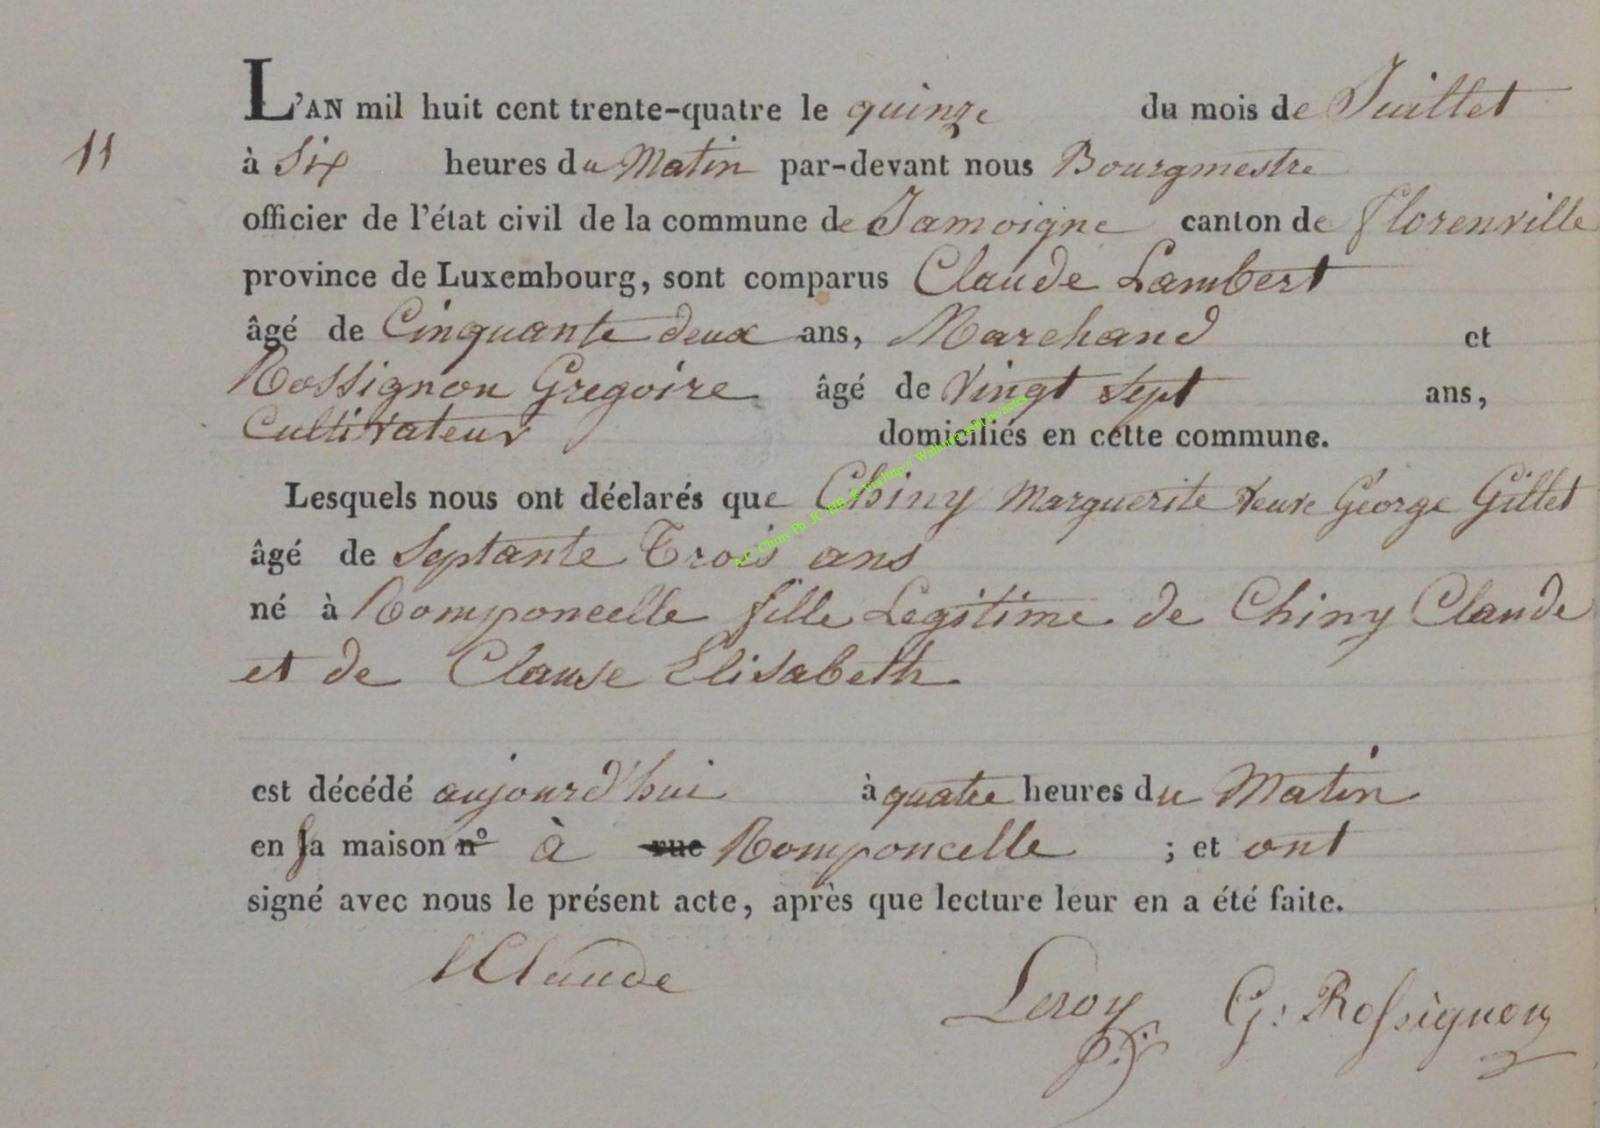 L'AN mil huit cent trente-quatre le quinze du mois de Juillet
11 à Six heures du Matin par-devant nous Bourgmestre
officier de l'état civil de la commune de Jamoigne canton de florenville
province de Luxembourg, sont comparus Claude Lambert
âgé de Cinquante deux ans, Marchand et
Rossignon Gregoire âgé de Vingt Sept ans,
Cultivateur domiciliés en cette commune.
Lesquels nous ont déclarés que Chiny Marguerite Veuve George Gillet
âgé de Septante Trois ans
né à Romponcelle fille Legitime de Chiny Claude
et de Clause Elisabeth
est décédé aujourd'hui à quatre heures du Matin
en sa maison n° à rue Romponcelle ; et ont
signé avec nous le présent acte, après que lecture leur en a été faite.
lClaude
Leroy G: Rossignon